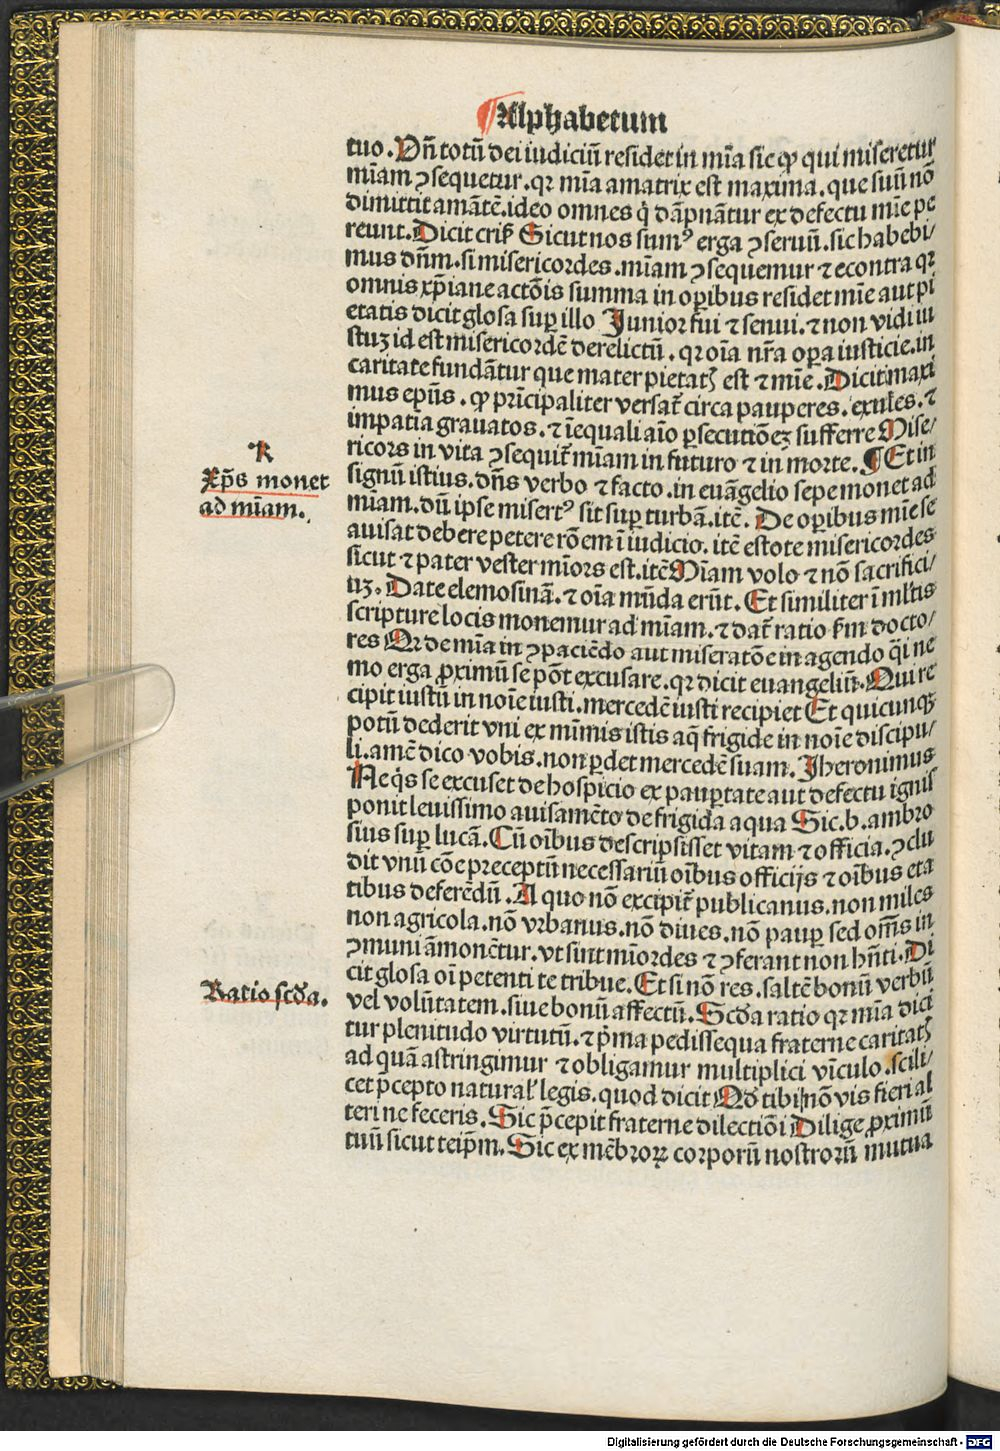 Alphabetum
tuo. Vñ totū dei iudiciū residet in mīa sic ꝙ qui miseretur
mīam ꝯsequetur. qꝛ mīa amatrix est maxima. que suū nō
dimittit amātē. ideo omnes q̇ dāpnātur ex defectu mīe pe
reunt. Dicit crisꝭ Sicut nos sumꝰ erga ꝯseruū. sic habebi/
mus dñm. si misericordes. mīam ꝯsequemur ⁊ econtra qꝛ
omnis xp̄iane actōis summa in oꝑibus residet mīe aut pi
etatis dicit glosa suꝑ illo Junior fui ⁊ senui. ⁊ non vidi iu
stuꝫ id est misericordē derelictū. qꝛ oīa nr̄a oꝑa iusticie. in
caritate fundātur que mater pietatꝭ est ⁊ mīe. Dicit maxi
mus ep̄us. ꝙ prīcipaliter versat̄ circa pauperes. exules. ⁊
impatia grauatos. ⁊ īequali aīo ꝑsecutiōeꝫ sufferre Mise/
ricors in vita ꝯsequit̄ mīam in futuro ⁊ in morte. ¶ Et in
signū istius. dñs verbo ⁊ facto. in euāgelio sepe monet ad
mīam. dū ipse misertꝰ sit suꝑ turbā. itē. De oꝑibus mīe se
auisat debere petere rōem ī iudicio. itē estote misericordes
sicut ⁊ pater vester mīors est. itē Mīam volo ⁊ nō sacrifici/
uꝫ. Date elemosinā. ⁊ oīa mūda erūt. Et similiter ī mltis
scripture locis monemur ad mīam. ⁊ dat̄ ratio ẜm docto/
res Qꝛ de mīa in ꝯpaciēdo aut miseratōe in agendo q̄i ne
mo erga ꝓximū se pōt excusare. qꝛ dicit euangeliū. Qui re
cipit iustū in noīe iusti. mercedē iusti recipiet Et quicunqꝫ
potū dederit vni ex mīmis istis aq̄ frigide in noīe discipu/
li. amē dico vobis. non ꝑdet mercedē suam. Jheronimus
Ne q̇s se excuset de hospicio ex pauꝑtate aut defectu ignis
ponit leuissimo auisamēto de frigida aqua Sic. b. ambro
sius suꝑ lucā. Cū oībus descripsisset vitam ⁊ officia. ꝯclu
dit vnū cōe preceptū necessariū oībus officijs ⁊ oībus eta
tibus deferēdū. A quo nō excipit̄ publicanus. non miles
non agricola. nō vrbanus. nō diues. nō pauꝑ sed om̄s in
ꝯmuni āmonētur. vt sint mīordes ⁊ ꝯferant non hn̄ti. Di
cit glosa oī petenti te tribue. Et si nō res. saltē bonū verbū
vel volūtatem. siue bonū affectū. Scd̄a ratio qꝛ mīa dici
tur plenitudo virtutū. ⁊ p̄ma pedissequa fraterne caritatꝭ
ad quā astringimur ⁊ obligamur multiplici vīculo. scili/
cet p̄cepto natural' legis. quod dicit Qd̄ tibi nō vis fieri al
teri ne feceris. Sic p̄cepit fraterne dilectiōi Dilige ꝓximū
tuū sicut teip̄m. Sic ex mēbroꝝ corporū nostrorū mutua
R
Xp̄s monet
ad mīam.
Ratio scd̄a.
Digitalisierung gefördert durch die Deutsche Forschungsgemeinschaft - DFG